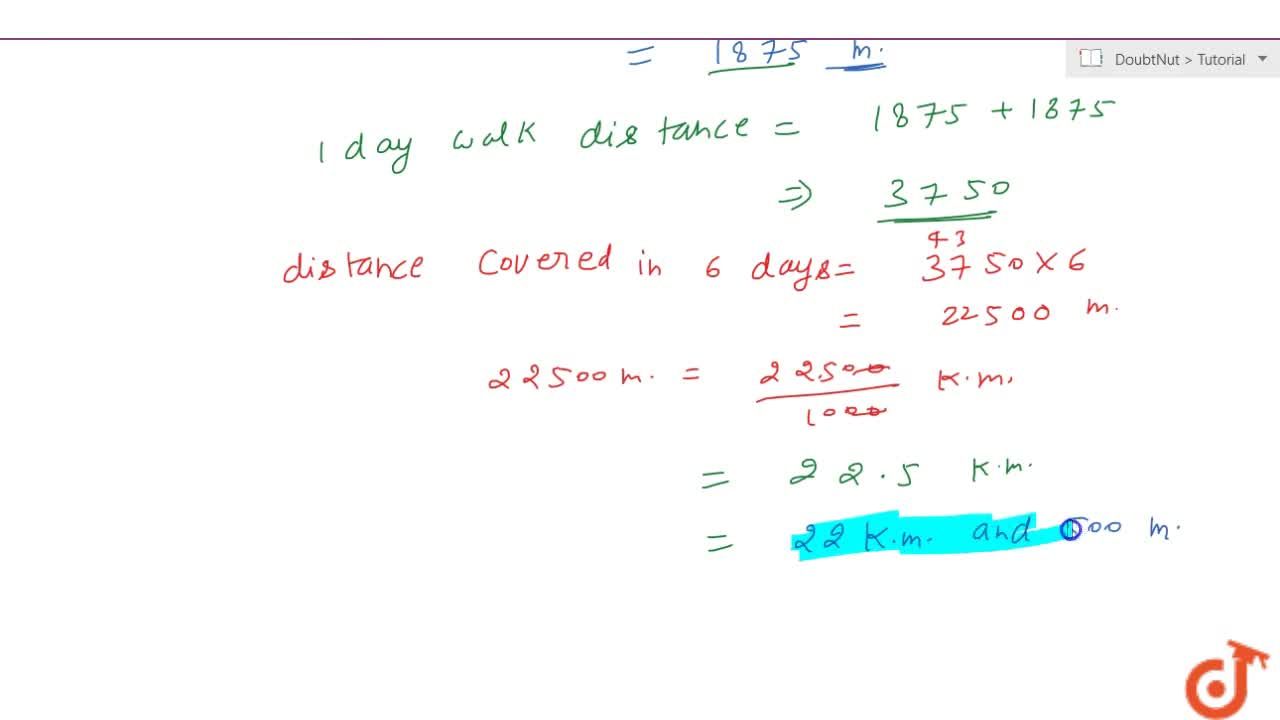 = 1875 m.
DoubtNut > Tutorial
1 day walk distance = 1875 + 1875
⇒ 3750
43
distance covered in 6 days = 3750 × 6
= 22500 m.
22500 m. = 22500 K.m.
1000
= 22.5 K.m.
= 22 K.m. and 500 m.